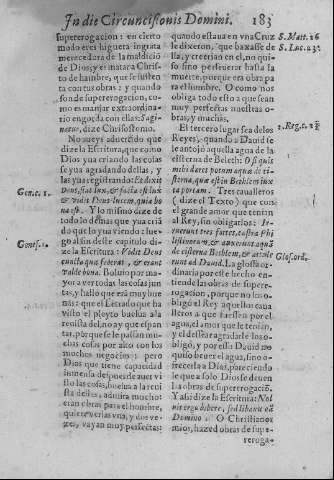 In die Circuncisionis Domini. 183
supererogacion: en cierto
modo eres higuera ingrata
merecedora de la maldició
de Dios; es matar a Chris-
to de hambre, que se susten
ta con tus obras: y quando
son de supererogacion, co-
mo es manjar extraordina-
rio engorda con ellas: Sagi-
natur, dize Chrisostomo.
No aueys aduertido que
dize la Escritura, que como
Dios yua criando las cosas
se yua agradando dellas, y
las yua registrando: Et dixit
Deus, fiat lux, & facta est lux
& vidit Deus lucem, quia bo
na est. Y lo mismo dize de
todo lo demas que yua criã
do que lo yua viendo: lue-
go al fin deste capitulo di-
ze la Escritura: Vidit Deus
cuncta quæ fecerat, & erant
valde bona. Boluio por ma-
yor a ver todas las cosas jun
tas, y hallo que erã muy bue
nas: que el Letrado que ha
visto el pleyto buelua a la
reuista del, no ay que espan
tar, porque se le passan mu-
chas cosas por alto con los
muchos negocios: pero
Dios que tiene capacidad
inmensa despues de auer vi
sto las cosas, buelua a la reui
sta dellas, admira mucho:
eran obras para el hombre,
quiere verlas vna, y dos ve-
zes, vayan muy perfectas:
Gen. c. 1.
Genes. 1.
quando estaua en vna Cruz
le dixeron, que baxasse de
lla, y creerian en el, no qui
so sino perseuerar hasta la
muerte, que era obra pa
ra el hombre. O como nos
obliga todo esto a que sean
muy perfectas nuestras
obras, y muchas.
El tercero lugar sea de los
Reyes, quando a Dauid se
le antojò aquella agua de la
cisterna de Beleth: O si quis
mihi daret potum aquæ de ci-
sterna, quæ est in Bethleem iux
ta portam. Tres caualleros
(dize el Texto) que con
el grande amor que tenian
al Rey, sin obligarlos: Ir-
ruperunt tres fortes, castra Phi
listinorum, & hauserunt aquã
de cisterna Bethlem, & attule
runt ad Dauid. La glossa or-
dinaria por este hecho en-
tiende las obras de supere-
rogacion, porque no los o-
bligò el Rey aquellos caua
lleros a que fuessen por el
agua, el amor que le tenian,
y el dessea agradarle los o-
bligò, y por esso Dauid no
quiso beuer el agua, sino o-
frecerla a Dios, pareciendo
le que a solo Dios se deuen
las obras de supererogaciõ.
Y assi dize la Escritura: Nol
uit ergo bibere, sed libauit eã
Domino. O Christianos
mios, hazed obras de supe-
reroga-
S. Matt. 26
S. Luc. 23.
2. Reg. c. 23
Glos. ord.